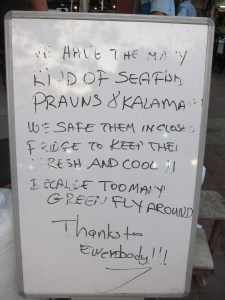 WE HAVE THE MANY
KIND OF SEAFISH
PRAUNS & KALAMA
WE SAFE THEM IN CLOSE
FRIDGE TO KEEP THEM
FRESH AND COOL !!
BECAUSE TOO MANY
GREEN FLY AROUND
Thanks to
Ewerbody!!!